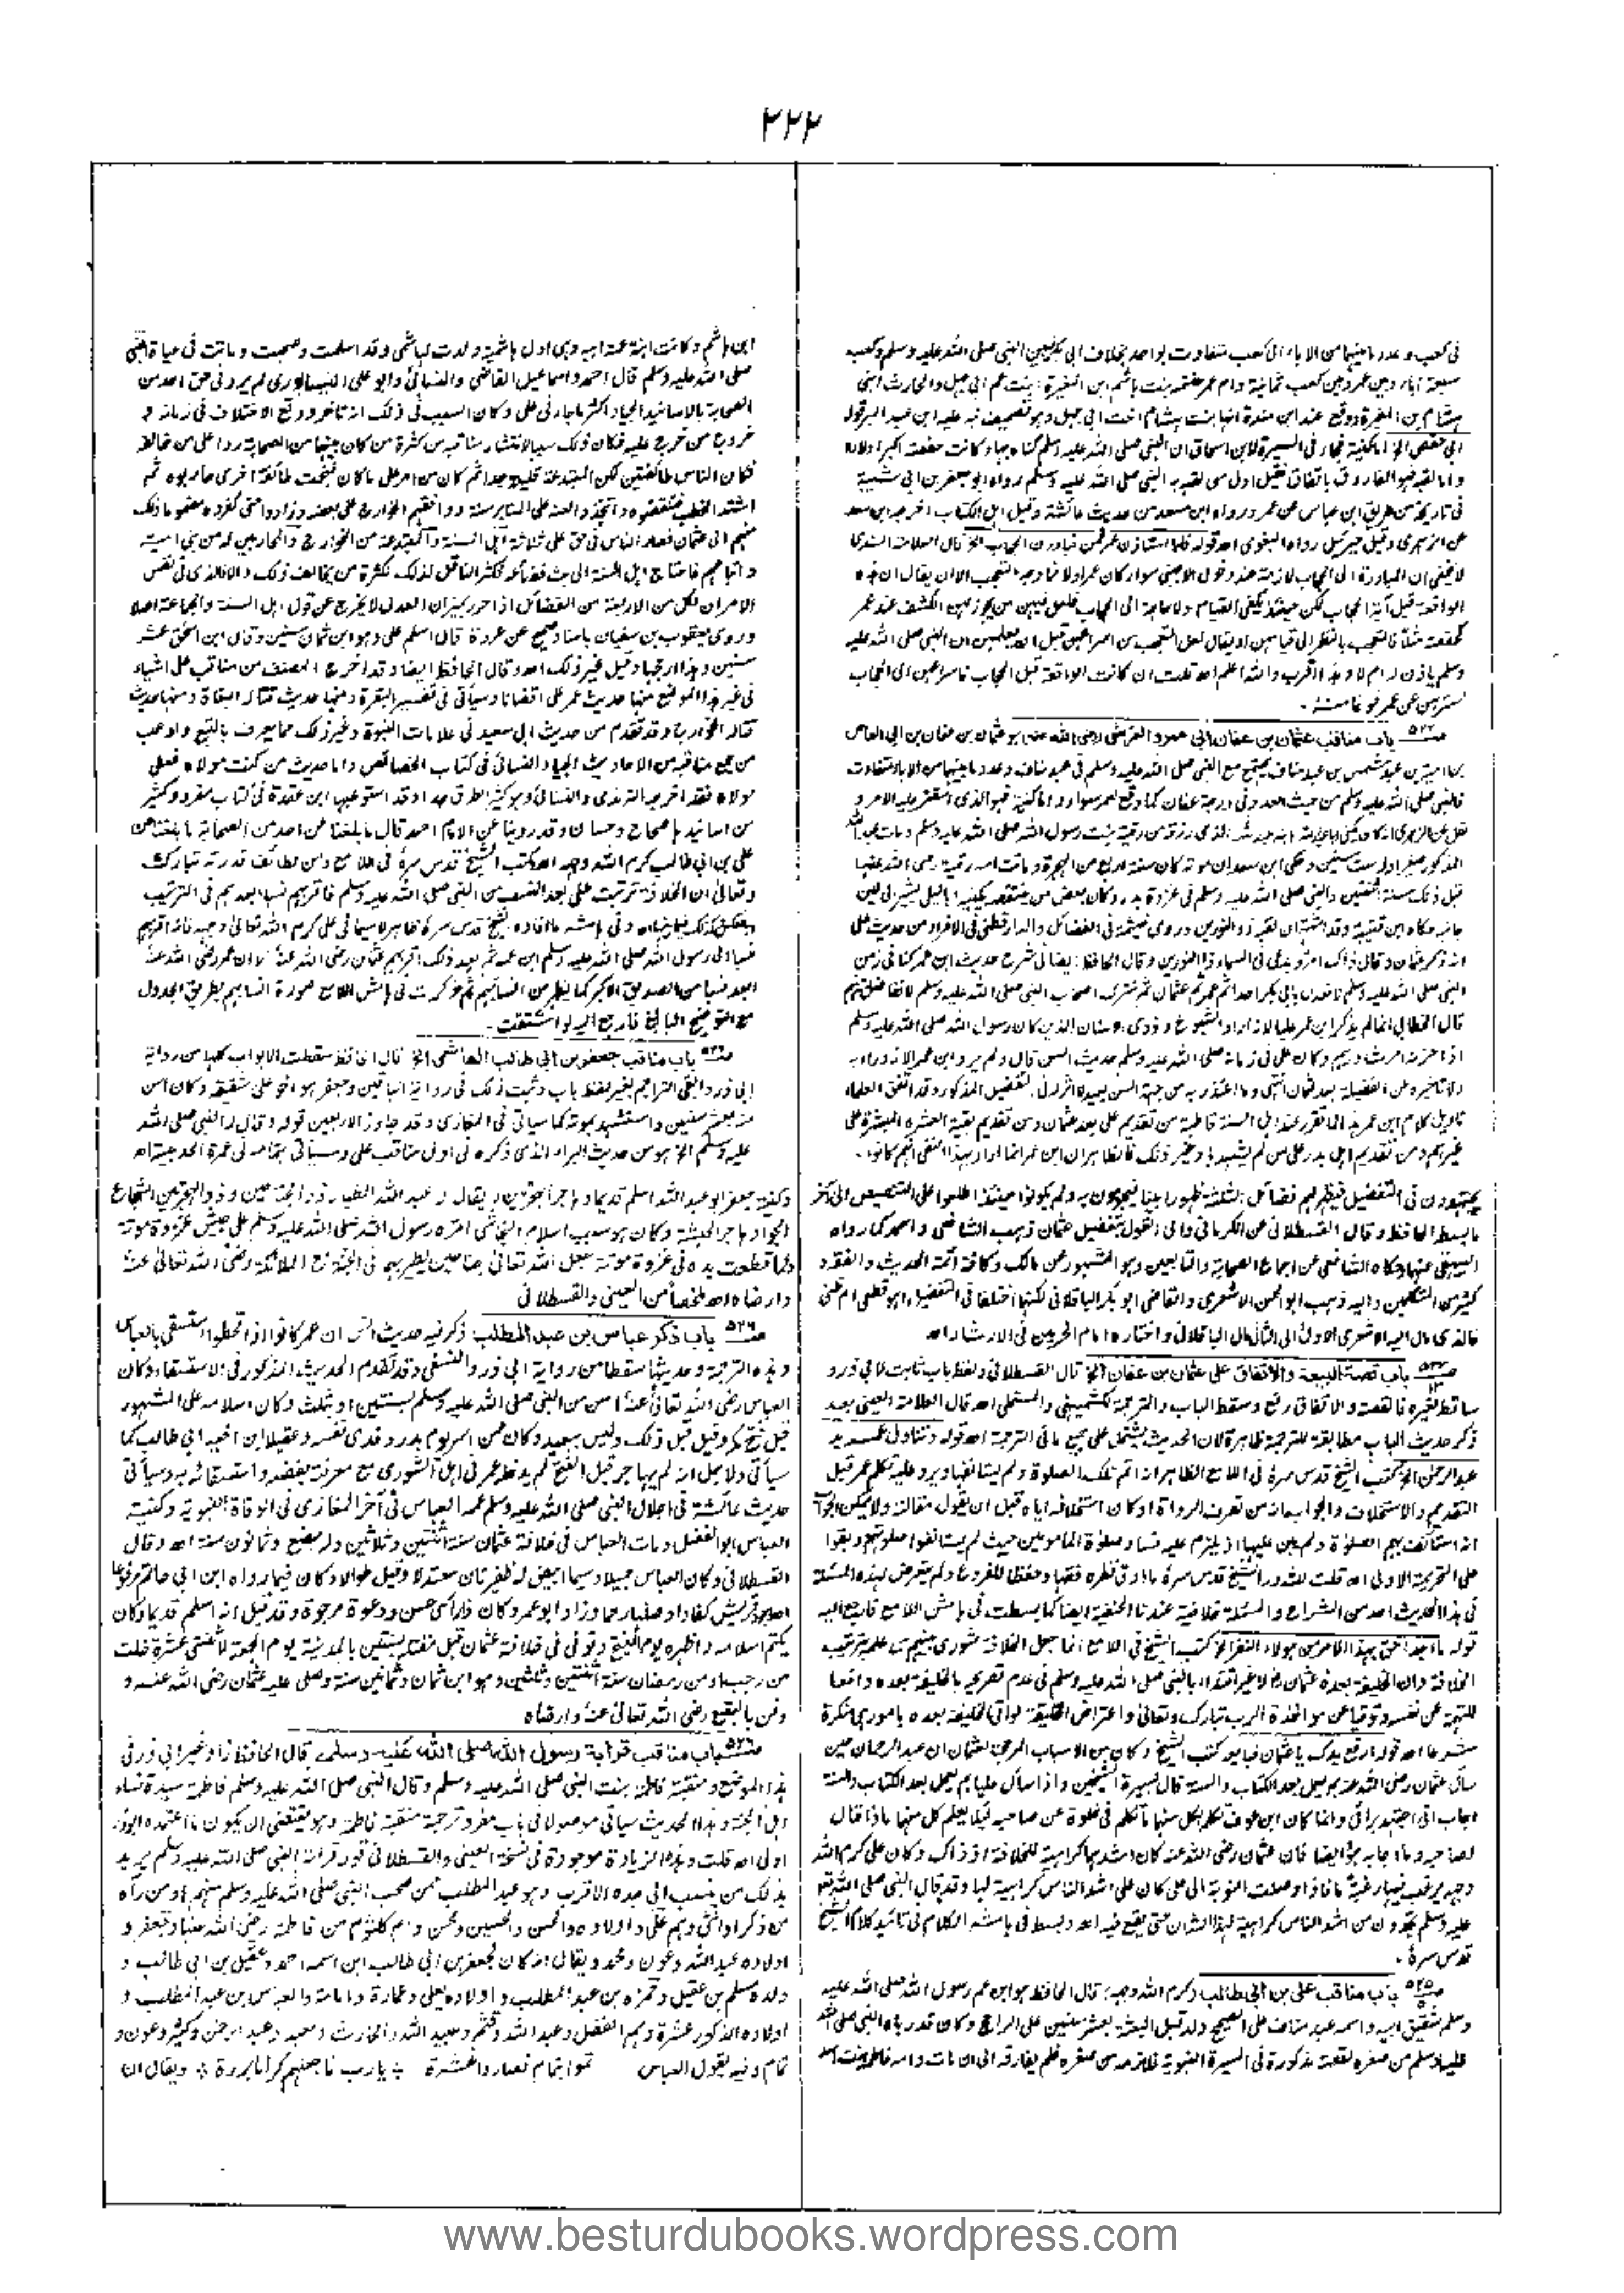 ٢٢٢
فى كعب وعدد ما بينهما من الآباء الى كعب متفاوت بواحد بخلاف ابى بكر فبين النبى صلى الله عليه وسلم وكعب
سبعة آباء وبين عمر وبين كعب ثمانية وام عمر حنتمة بنت هاشم ابن المغيرة بنت عم ابى جهل والحارث ابنى
هشام بن المغيرة ووقع عند ابن مندة انها بنت هشام اخت ابى جهل وهو تصحيف نبه عليه ابن عبد البر قوله
ابى حفص الخ اما كنيته فجاء فى السيرة لابن اسحاق ان النبى صلى الله عليه وسلم كناه بها وكانت حفصة اكبر اولاده
واما لقبه فهو الفاروق باتفاق فقيل اول من لقبه به النبى صلى الله عليه وسلم رواه ابو جعفر بن ابى شيبة
فى تاريخه من طريق ابن عباس عن عمر ورواه ابن سعد من حديث عائشة وقيل اهل الكتاب اخرجه ابن سعد
عن الزهرى وقيل جبرئيل رواه البغوى اه قوله فلما استأذن عمر قمن فبادرن الحجاب الخ قال العلامة السندى
وسلم ياذن لهم اولا وهذا اقرب والله اعلم اه قلت ان كانت الواقعة قبل الحجاب فاسراعهن الى الحجاب
باب مناقب عثمان بن عفان ابى عمرو القرشى رضى الله عنه هو عثمان بن عفان بن ابى العاص
بن امية بن عبد شمس بن عبد مناف يجتمع مع النبى صلى الله عليه وسلم فى عبد مناف وعدد ما بينهما من الآباء متفاوت
فالنبى صلى الله عليه وسلم من حيث العدد فى درجة عفان كما وقع لعمر سواء واما كنيته فهو الذى استقر عليه الامر و
المذكور صغيرا وله ست سنين وحكى ابن سعد ان موته كان سنة اربع من الهجرة وماتت امه رقية رضى الله عنها
قبل ذلك سنة ثنتين والنبى صلى الله عليه وسلم فى غزوة بدر وكان بعض من ينتقصه يكنيه ابا ليلى يشير الى لين
جانبه حكاه ابن قتيبة وقد اشتهر ان لقبه ذو النورين وروى خيثمة فى الفضائل والدارقطنى فى الافراد من حديث على
انه ذكر عثمان فقال ذاك امرؤ يدعى فى السماء ذا النورين وقال الحافظ ايضا فى شرح حديث ابن عمر كنا فى زمن
النبى صلى الله عليه وسلم لا نعدل بابى بكر احدا ثم عمر ثم عثمان ثم نترك اصحاب النبى صلى الله عليه وسلم لا نفاضل بينهم
قال الخطابى انما لم يذكر ابن عمر عليا لانه اراد الشيوخ وذوى الاسنان الذين كان رسول الله صلى الله عليه وسلم
اذا حزبه امر شاورهم وكان على فى زمانه صلى الله عليه وسلم حديث السن قال ولم يرد ابن عمر الازدراء به
ولا تاخيره عن الفضيلة بعد عثمان انتهى وما اعتذر به من جهة السن بعيد لا اثر له فى التفضيل المذكور وقد اتفق العلماء
تاويل كلام ابن عمر هذا لما تقرر عند اهل السنة قاطبة من تقديم على بعد عثمان ومن تقديم بقية العشرة المبشرة على
غيرهم ومن تقديم اهل بدر على من لم يشهدها وغير ذلك فالظاهر ان ابن عمر انما اراد بهذا النفى انهم كانوا
يجتهدون فى التفضيل فيظهر لهم فضائل الثلاثة ظهورا بينا فيجزمون به ولم يكونوا حينئذ اطلعوا على التنصيص الى آخر
ما بسط الحافظ وقال القسطلانى عن الكرمانى والى القول بتفضيل عثمان ذهب الشافعى واحمد كما رواه
البيهقى عنهما وحكاه الشافعى عن اجماع الصحابة والتابعين وهو المشهور عن مالك وكافة ائمة الحديث والفقه و
كثير من المتكلمين واليه ذهب ابو الحسن الاشعرى والقاضى ابو بكر الباقلانى لكنهما اختلفا فى التفضيل اهو قطعى ام ظنى
فالذى مال اليه الاشعرى الاول والى الثانى مال الباقلانى واختاره امام الحرمين فى الارشاد اه
باب قصة البيعة والاتفاق على عثمان بن عفان الخ قال القسطلانى ولفظ باب ثابت لابى ذر و
ساقط لغيره فالقصة والاتفاق رفع وسقط الباب والترجمة للكشميهنى والمستملى اه قال العلامة العينى بعد
ذكر حديث الباب مطابقته للترجمة ظاهرة لان الحديث يشتمل على جميع ما فى الترجمة اه قوله وتناول عمر يد
عبد الرحمن الخ كتب الشيخ قدس سره فى اللامع الظاهر انه اتم تلك الصلوة ولم يستأنفها ويرد عليه تكلم عمر قبل
التقديم والاستخلاف والجواب انه من تصرف الرواة او كان استخلافه اياه قبل ان يقول مقالته ولا يمكن الجواب
على التحريمة الاولى اه قلت لله در الشيخ قدس سره ما ادق نظره فقها وحفظا للفروع ولم يتعرض لهذه المسئلة
فى هذا الحديث احد من الشراح والمسئلة خلافية عندنا الحنفية ايضا كما بسطت فى هامش اللامع فارجع اليه
قوله ما اجد احق بهذا الامر من هؤلاء النفر الخ كتب الشيخ فى اللامع انما جعل الخلافة شورى بينهم مع علمه بترتيب
الخلافة وان الخليفة بعده عثمان لا غير اقتداء بالنبى صلى الله عليه وسلم فى عدم تصريحه بالخليفة بعده ودافعا
للتهمة عن نفسه وتوقيا عن مؤاخذة الرب تبارك وتعالى واعتراض الخليقة لو اتى الخليفة بعده بامور هى منكرة
شرعا اه قوله ارفع يدك يا عثمان فبايعه كتب الشيخ وكان من الاسباب المرجحة لعثمان ان عبد الرحمان حين
سأل عثمان رضى الله عنه بم يعمل بعد الكتاب والسنة قال بسيرة الشيخين واذا سأل عليا بم يعمل بعد الكتاب والسنة
اجاب انى اجتهد برائى وانما كان ابن عوف تكلم بكل منهما ما تكلم فى خلوة عن صاحبه لئلا يعلم كل منهما ماذا قال
لصاحبه وما اجابه هو ايضا فان عثمان رضى الله عنه كان اشدهما كراهية للخلافة اذ ذاك وكان على كرم الله
عليه وسلم تجدون من اشد الناس كراهية لهذا الشان حتى يقع فيه اه وبسط فى هامشه الكلام فى تائيد كلام الشيخ
قدس سره
باب مناقب على بن ابى طالب كرم الله وجهه قال الحافظ هو ابن عم رسول الله صلى الله عليه
وسلم شقيق ابيه واسمه عبد مناف على الصحيح ولد قبل البعثة بعشر سنين على الراجح وكان قد رباه النبى صلى الله
عليه وسلم من صغره لقصة مذكورة فى السيرة النبوية فلازمه من صغره فلم يفارقه الى ان مات وامه فاطمة بنت اسد
ابن هاشم وكانت ابنة عمة ابيه وهى اول هاشمية ولدت لهاشمى وقد اسلمت وصحبت وماتت فى حياة النبى
صلى الله عليه وسلم قال احمد واسماعيل القاضى والنسائى وابو على النيسابورى لم يرد فى حق احد من
الصحابة بالاسانيد الجياد اكثر ما جاء فى على وكان السبب فى ذلك انه تاخر ووقع الاختلاف فى زمانه و
خروج من خرج عليه فكان ذلك سببا لانتشار مناقبه من كثرة من كان بينها من الصحابة ردا على من خالفه
فكان الناس طائفتين لكن المبتدعة قليلة جدا ثم كان من امر على ما كان فنجمت طائفة اخرى حاربوه ثم
اشتد الخطب فتنقصوه واتخذوا لعنه على المنابر سنة ووافقهم الخوارج على بغضه وزادوا حتى كفروه مضموما ذلك
منهم الى عثمان فصار الناس فى حق على ثلاثة اهل السنة والمبتدعة من الخوارج والمحاربين له من بنى امية
واتباعهم فاحتاج اهل السنة الى بث فضائله فكثر الناقل لذلك لكثرة من يخالف ذلك والا فالذى فى نفس
الامر ان لكل من الاربعة من الفضائل اذا حرر بميزان العدل لا يخرج عن قول اهل السنة والجماعة اصلا
وروى يعقوب بن سفيان باسناد صحيح عن عروة قال اسلم على وهو ابن ثمان سنين وقال ابن اسحق عشر
سنين وهذا ارجحها وقيل غير ذلك اه وقال الحافظ ايضا وقد اخرج المصنف من مناقب على اشياء
فى غير هذا الموضع منها حديث عمر على اقضانا وسيأتى فى تفسير البقرة ومنها حديث قتاله البغاة ومنها حديث
قتاله الخوارج وقد تقدم من حديث ابى سعيد فى علامات النبوة وغير ذلك مما يعرف بالتتبع واوعب
من جمع مناقبه من الاحاديث الجياد النسائى فى كتاب الخصائص واما حديث من كنت مولاه فعلى
مولاه فقد اخرجه الترمذى والنسائى وهو كثير الطرق جدا وقد استوعبها ابن عقدة فى كتاب مفرد وكثير
من اسانيدها صحاح وحسان وقد روينا عن الامام احمد قال ما بلغنا عن احد من الصحابة ما بلغنا عن
على بن ابى طالب كرم الله وجهه اه كتب الشيخ قدس سره فى اللامع ومن لطائف قدرته تبارك
وتعالى ان الخلافة ترتبت على بعد النسب من النبى صلى الله عليه وسلم فاقربهم نسبا ابعدهم فى الترتيب
نسبا الى رسول الله صلى الله عليه وسلم ابن عمه ثم بعد ذلك اقربهم عثمان رضى الله عنه لان عمر رضى الله عنه
ابعد نسبا من الصديق الاكبر كما يظهر من انسابهم ثم ذكرت فى هامش اللامع صورة انسابهم بطريق الجدول
مع التوضيح البالغ فارجع اليه لو اشتقت
باب مناقب جعفر بن ابى طالب الهاشمى الخ قال الحافظ سقطت الابواب كلها من رواية
ابى ذر وابقى التراجم بغير لفظ باب وثبت ذلك فى رواية الباقين وجعفر هو اخو على شقيقه وكان اسن
منه بعشر سنين واستشهد بموتة كما سياتى فى المغازى وقد جاوز الاربعين قوله وقال له النبى صلى الله
عليه وسلم الخ هو من حديث البراء الذى ذكره فى اول مناقب على وسياتى بتمامه فى عمرة الحديبية اه
وكنيته جعفر ابو عبد الله اسلم قديما وهاجر الهجرتين ويقال له عبد الله الطيار ذو الجناحين وذو الهجرتين الشجاع
الجواد هاجر الحبشة وكان هو سبب اسلام النجاشى امره رسول الله صلى الله عليه وسلم على جيش غزوة موتة
ولما قطعت يده فى غزوة موتة جعل الله تعالى له جناحين يطير بهما فى الجنة مع الملائكة رضى الله تعالى عنه
وارضاه اه ملخصا من العينى والقسطلانى
باب ذكر عباس بن عبد المطلب ذكر فيه حديث انس ان عمر كانوا اذا قحطوا استسقى بالعباس
وهذه الترجمة وحديثها سقطا من رواية ابى ذر والنسفى وقد تقدم الحديث المذكور فى الاستسقاء وكان
العباس رضى الله تعالى عنه اسن من النبى صلى الله عليه وسلم بسنتين او بثلث وكان اسلامه على المشهور
قبل فتح مكة وقيل قبل ذلك وليس ببعيد وكان ممن اسر يوم بدر وفدى نفسه وعقيلا ابن اخيه ابى طالب كما
سيأتى ولاجل انه لم يهاجر قبل الفتح لم يدخله عمر فى اهل الشورى مع معرفته بفضله واستسقائه به وسيأتى
حديث عائشة فى اجلال النبى صلى الله عليه وسلم عمه العباس فى آخر المغازى فى الوفاة النبوية وكنيته
العباس ابو الفضل ومات العباس فى خلافة عثمان سنة اثنتين وثلاثين وله بضع وثمانون سنة اه وقال
القسطلانى وكان العباس جميلا وسيما ابيض له ظفرتان معتدلا وقيل طوالا وكان فيما رواه ابن ابى حاتم مرفوعا
اجود قريش كفا واوصلها رحما وزاد ابو عمر وكان ذا رأى حسن ودعوة مرجوة وقد قيل انه اسلم قديما وكان
يكتم اسلامه واظهره يوم الفتح وتوفى فى خلافة عثمان قبل مقتله بسنتين بالمدينة يوم الجمعة لاثنتى عشرة خلت
من رجب او من رمضان سنة اثنتين وثلثين وهو ابن ثمان وثمانين سنة وصلى عليه عثمان رضى الله عنه و
دفن بالبقيع رضى الله تعالى عنه وارضاه
باب مناقب قرابة رسول الله صلى الله عليه وسلم قال الحافظ زاد غير ابى ذر فى
هذا الموضع ومنقبة فاطمة بنت النبى صلى الله عليه وسلم وقال النبى صلى الله عليه وسلم فاطمة سيدة نساء
اهل الجنة وهذا الحديث سياتى موصولا فى باب مفرد ترجمته منقبة فاطمة وهو يقتضى ان يكون ما اعتمده ابو ذر
اولى اه قلت وهذه الزيادة موجودة فى نسخة العينى والقسطلانى قوله قرابة النبى صلى الله عليه وسلم يريد
بذلك من ينسب الى جده الاقرب وهو عبد المطلب ممن صحب النبى صلى الله عليه وسلم منهم او من رآه
من ذكر او انثى وهم على واولاده الحسن والحسين ومحسن وام كلثوم من فاطمة رضى الله عنها وجعفر و
اولاده عبد الله وعون ومحمد ويقال انه كان لجعفر بن ابى طالب ابن اسمه احمد وعقيل بن ابى طالب و
ولده مسلم بن عقيل وحمزة بن عبد المطلب واولاده يعلى وعمارة وامامة والعباس بن عبد المطلب و
اولاده الذكور عشرة وهم الفضل وعبد الله وقثم وعبيد الله والحارث ومعبد وعبد الرحمن وكثير وعون و
تمام وفيه يقول العباس تموا بتمام فصاروا عشرة يا رب فاجعلهم كراما بررة ويقال ان
www.besturdubooks.wordpress.com